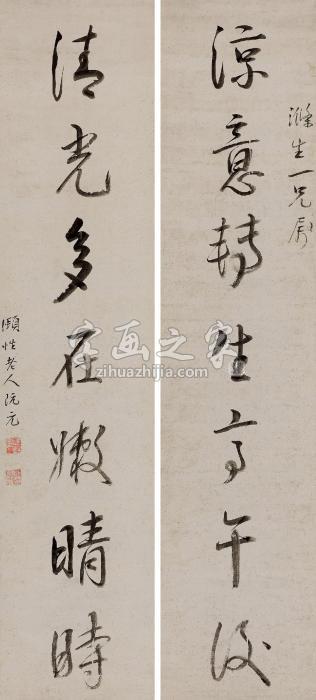 滌生一兄屬
涼意轉生亭午後
清光多在嫩晴時
頤性老人阮元
字画之家
zihuazhijia.com